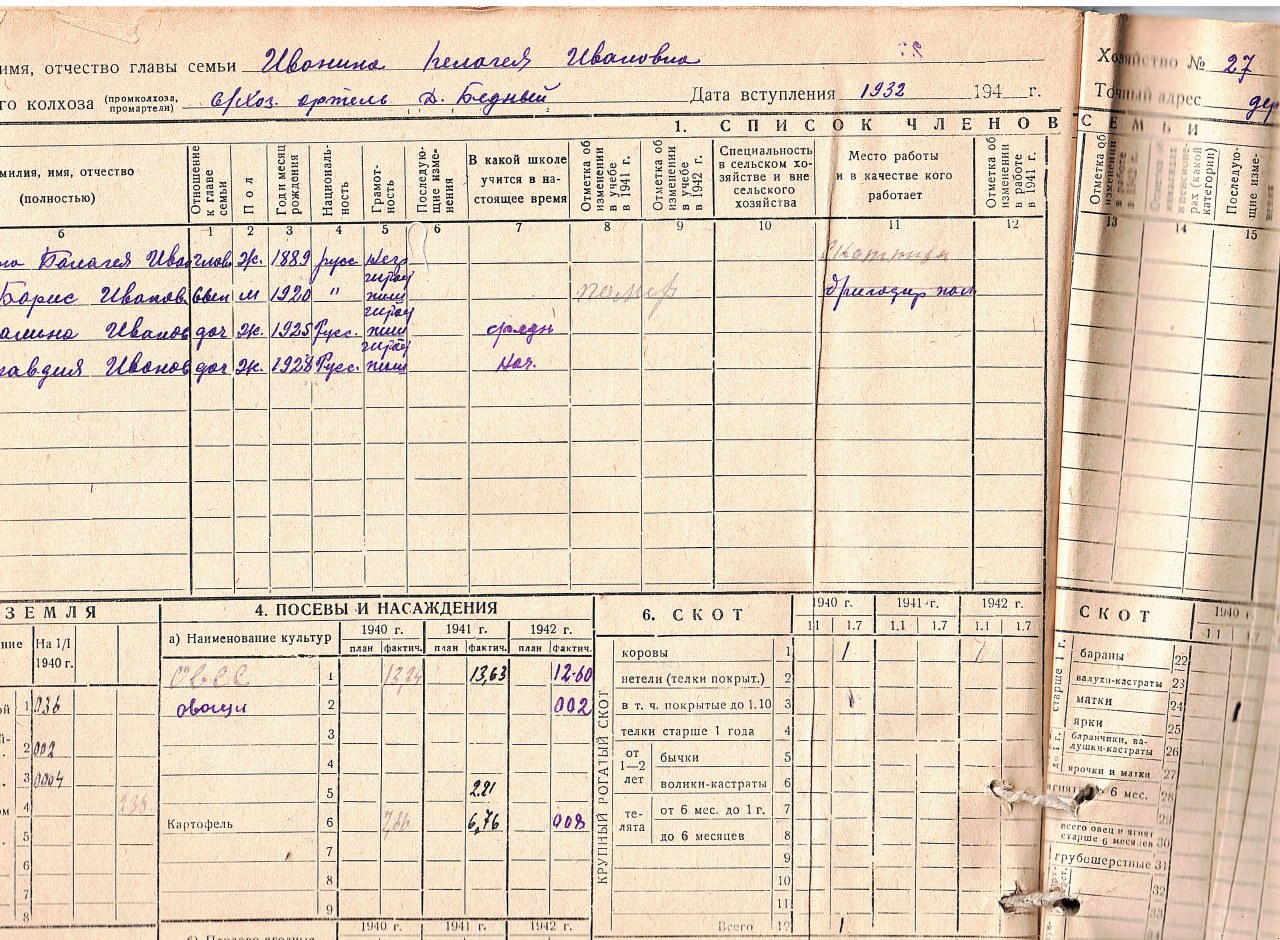 имя, отчество главы семьи Иванина Пелагея Ивановна
Хозяйство № 27
го колхоза (промколхоза, промартели) с/хоз. артель Д. Бедный Дата вступления 1932 194 г.
Точный адрес дер
1. СПИСОК ЧЛЕНОВ СЕМЬИ
амилия, имя, отчество (полностью)
Отношение к главе семьи
Пол
Год и месяц рождения
Националь-ность
Грамот-ность
Последую-щие изме-нения
В какой школе учится в на-стоящее время
Отметка об изменении в учебе в 1941 г.
Отметка об изменении в учебе в 1942 г.
Специальность в сельском хо-зяйстве и вне сельского хозяйства
Место работы и в качестве кого работает
Отметка об изменении в работе в 1941 г.
Отметка об изменении в работе
рах (какой категории)
Последую-щие изме-
б 1 2 3 4 5 6 7 8 9 10 11 12 13 14 15
Палагея Иван глав Ж. 1889 русс негр
Борис Иванов сын м 1920 " помер бригадир пол
Иванов доч ж. 1925 Русс. средн
авдия Иванов доч ж. 1928 Русс. нач.
ЗЕМЛЯ
ние На 1/I 1940 г.
1 036
2 002
3 0004
4
5
6
7
8
4. ПОСЕВЫ И НАСАЖДЕНИЯ
а) Наименование культур 1940 г. 1941 г. 1942 г.
план фактич. план фактич. план фактич.
овес 1 13,63 12-60
овощи 2 002
3
4
5 2.21
Картофель 6 7,66 6,76 008
7
8
9
1940 г. 1941 г. 1942 г.
6. СКОТ 1940 г. 1941 г. 1942 г.
1.1 1.7 1.1 1.7 1.1 1.7
КРУПНЫЙ РОГАТЫЙ СКОТ
коровы 1 1 1
нетели (телки покрыт.) 2
в т. ч. покрытые до 1.10 3 1
телки старше 1 года 4
от 1—2 лет
бычки 5
волики-кастраты 6
те-лята
от 6 мес. до 1 г. 7
до 6 месяцев 8
9
10
11
Всего 12 1
СКОТ 1940
1.1 1.7
старше 1 г.
бараны 22
валухи-кастраты 23
матки 24 1
ярки 25
до 1 г.
баранчики, ва-лушки-кастраты 26
ярочки и матки 27
6 мес. 28
29
всего овец и ягнят старше 6 месяцев 30
грубошерстные 31
32
33
34